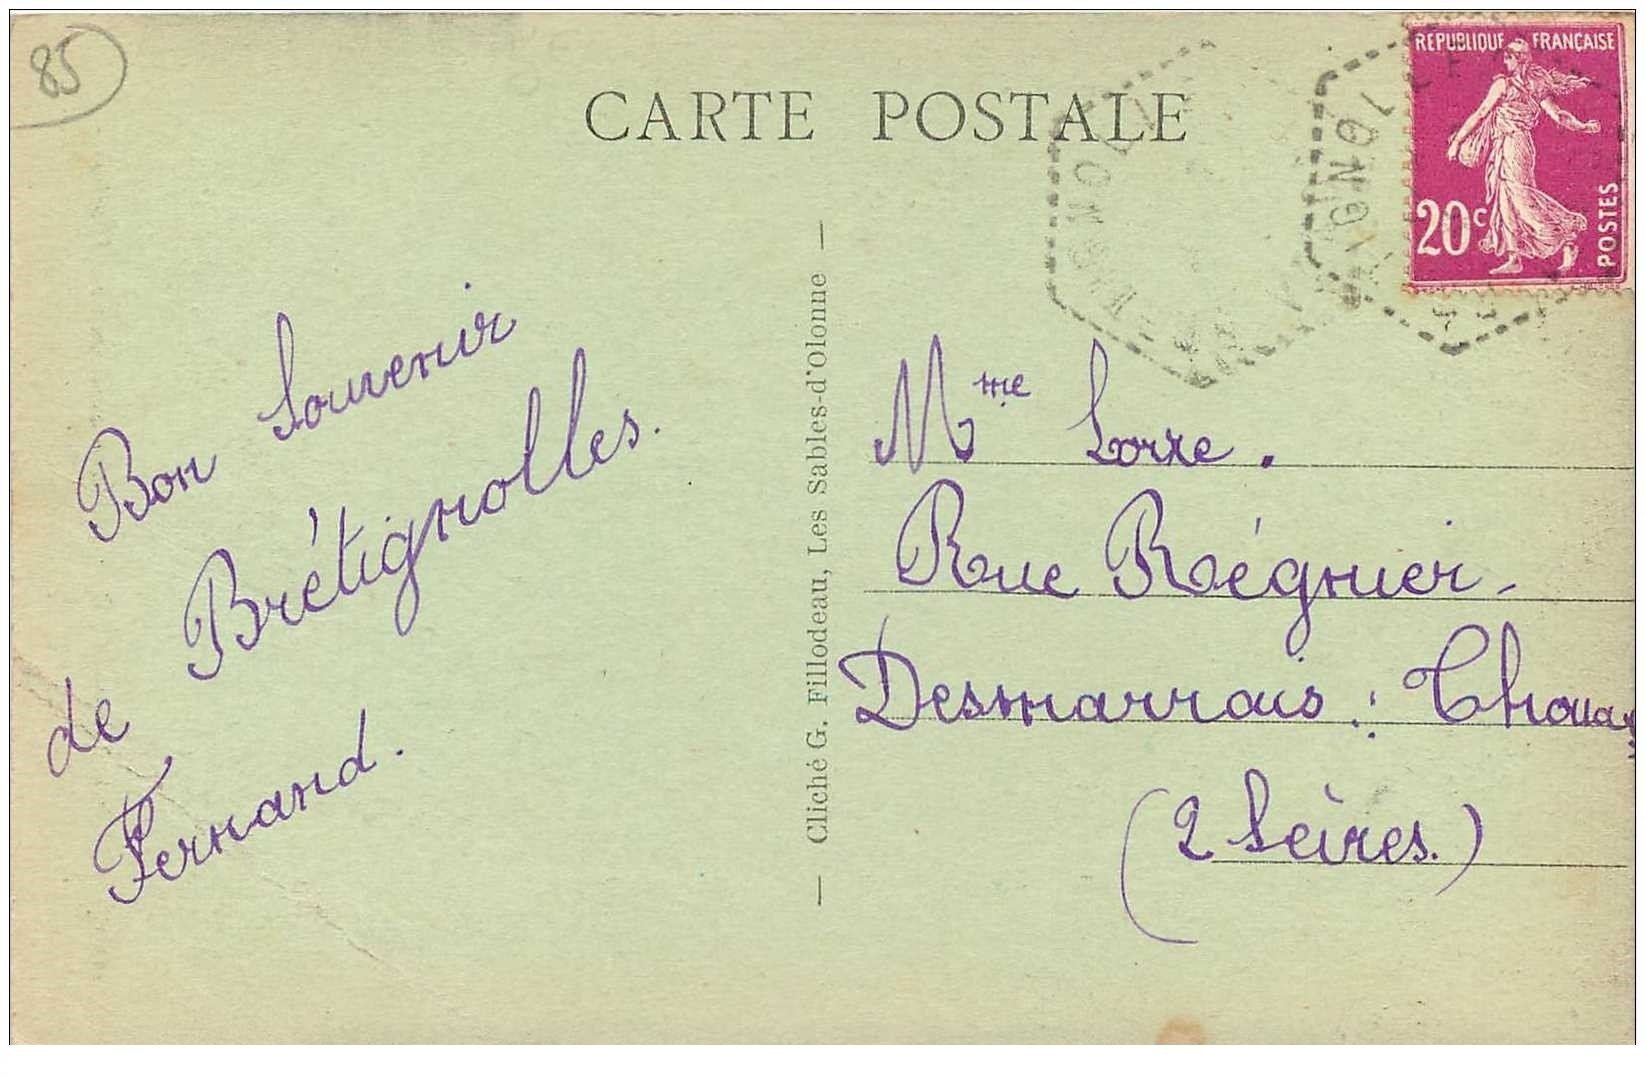 85
CARTE POSTALE
REPUBLIQUE FRANÇAISE
20c
POSTES
Bon Souvenir
de Brétignolles.
Fernand.
— Cliché G. Fillodeau, Les Sables-d'Olonne —
Mme Lorre.
Rue Régnier-
Desmarrais : Thouars
(2 Sèvres.)